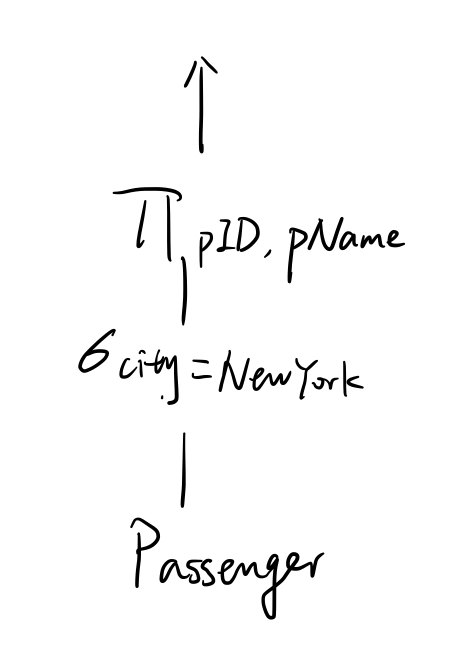 π pID, pName
σ city = New York
Passenger